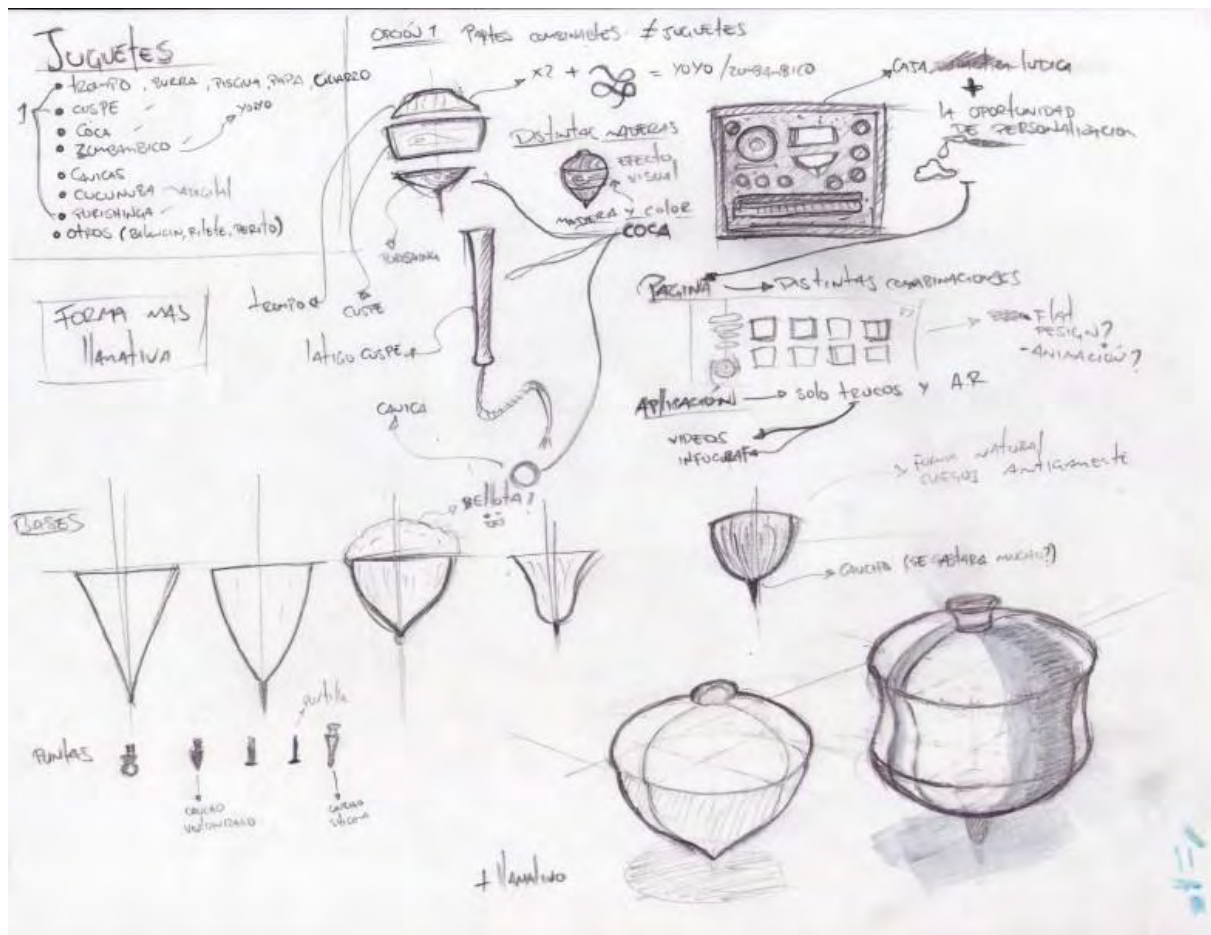 JUGUETES
• TROMPO, BURRA, PISGUA, PAPA, CUARZO
1 • CUSPE
• COCA
• ZUMBAMBICO → YOYO
• CANICAS
• CUCUNUBA
• PURISHINGA
• OTROS (
FORMA MAS
llamativa
OPCIÓN 1 PARTES COMBINABLES ≠ JUGUETES
X2 + = YOYO / ZUMBAMBICO
DISTINTAS MADERAS
EFECTO
VISUAL
MADERA Y COLOR
COCA
TROMPO
CUSPE
LATIGO CUSPE
CANICA
CAJA LUDICA
+
LA OPORTUNIDAD
DE PERSONALIZACION
PAGINA → DISTINTAS COMBINACIONES
FLAT
DESIGN?
- ANIMACIÓN?
APLICACIÓN → SOLO TRUCOS Y A.R
VIDEOS
FORMA NATURAL
JUEGOS ANTIGAMENTE
BELLOTA?
BASES
CAUCHO (SE GASTARA MUCHO?)
PUNTAS
puntilla
CAUCHO
CAUCHO
SILICONA
+ llamativo